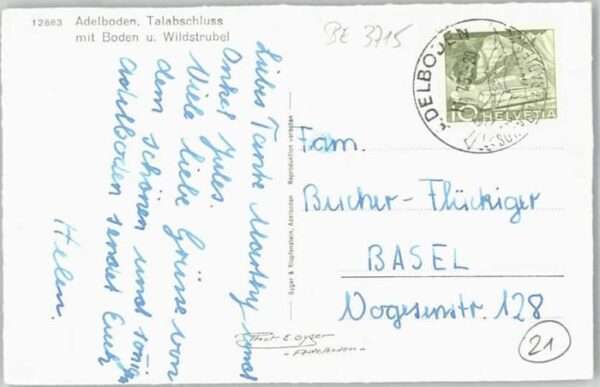 12863 Adelboden, Talabschluss
mit Boden u. Wildstrubel
BE 3715
Liebe Tante Marthy und
Onkel Jules.
Viele liebe Grüsse von
dem schönen und sonnigen
Adelboden sendet Euch
Helen.
Gyger & Klopfenstein, Adelboden Reproduktion verboten
ADELBODEN
10 HELVETIA
Fam.
Bucher-Flückiger
BASEL
Vogesenstr. 128
Phot E. Gyger
- ADELBODEN -
21